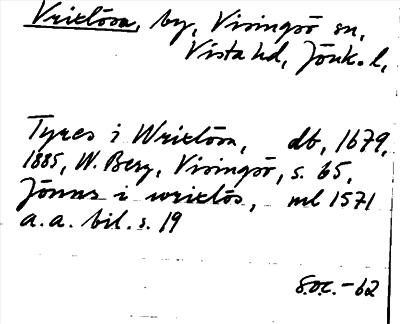 Vrixlösa, by, Visingsö sn,
Vista hd, Jönk. l,
Tyres i Wrixlösa, db, 1679,
1885, W. Berg, Visingsö, s. 65,
Jönns i wrixlös, ml 1571
a. a. bil. s. 19
S.O.E. - 62